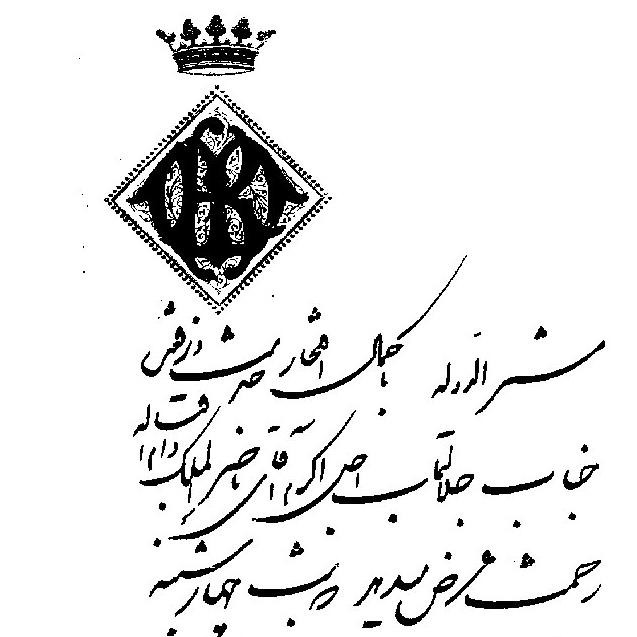 مشیرالدوله با کمال افتخار خدمت ذیشرافت
جناب جلالتمآب اجل اکرم آقای ناصرالملک دام اقباله
زحمت عرض میدهد شب چهارشنبه